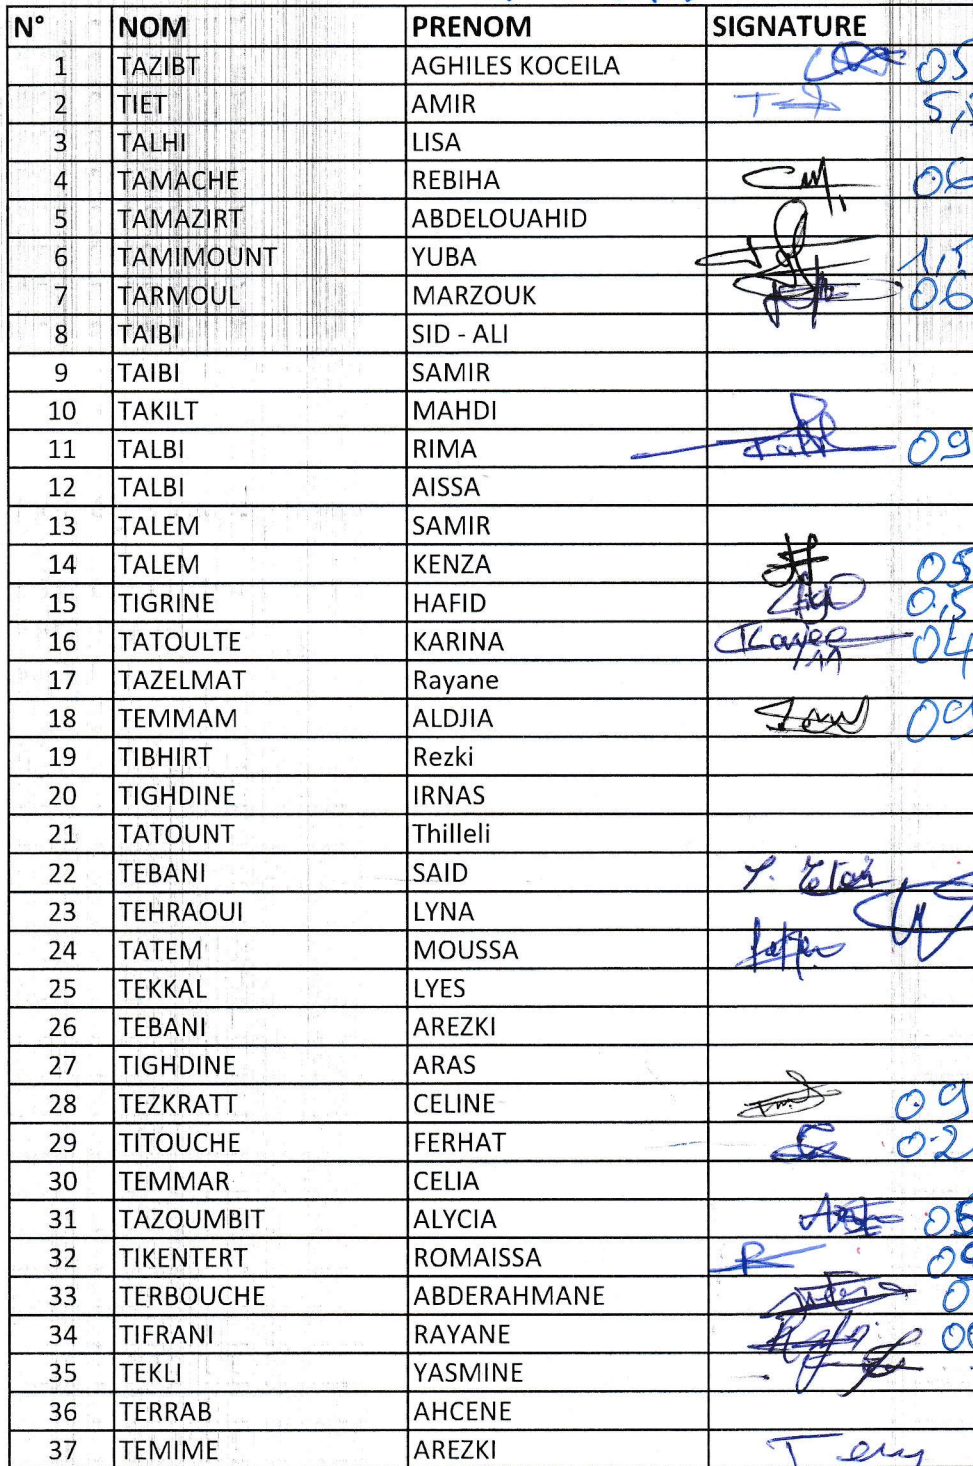 N° NOM PRENOM SIGNATURE
1 TAZIBT AGHILES KOCEILA 05
2 TIET AMIR 5,
3 TALHI LISA
4 TAMACHE REBIHA 06
5 TAMAZIRT ABDELOUAHID
6 TAMIMOUNT YUBA 1,5
7 TARMOUL MARZOUK 06
8 TAIBI SID - ALI
9 TAIBI SAMIR
10 TAKILT MAHDI
11 TALBI RIMA 09
12 TALBI AISSA
13 TALEM SAMIR
14 TALEM KENZA 05
15 TIGRINE HAFID 0,5
16 TATOULTE KARINA 04
17 TAZELMAT Rayane
18 TEMMAM ALDJIA 09
19 TIBHIRT Rezki
20 TIGHDINE IRNAS
21 TATOUNT Thilleli
22 TEBANI SAID
23 TEHRAOUI LYNA
24 TATEM MOUSSA
25 TEKKAL LYES
26 TEBANI AREZKI
27 TIGHDINE ARAS
28 TEZKRATT CELINE 09
29 TITOUCHE FERHAT 02
30 TEMMAR CELIA
31 TAZOUMBIT ALYCIA 05
32 TIKENTERT ROMAISSA
33 TERBOUCHE ABDERAHMANE
34 TIFRANI RAYANE
35 TEKLI YASMINE
36 TERRAB AHCENE
37 TEMIME AREZKI